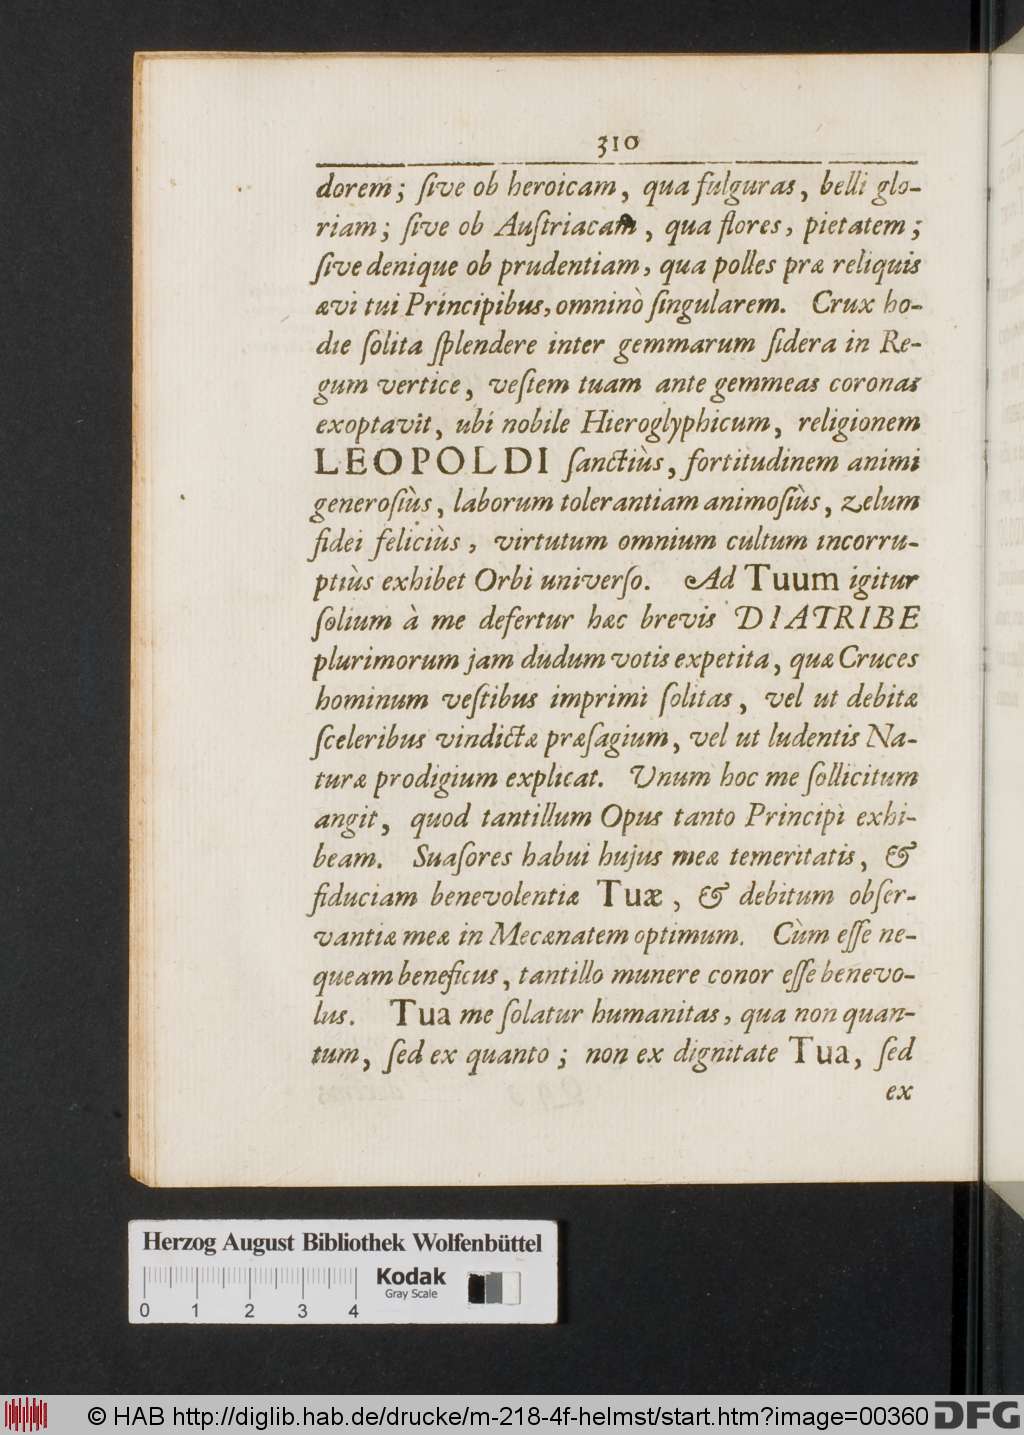 310
dorem; ſive ob heroicam, qua fulguras, belli glo-
riam; ſive ob Auſtriacam, qua flores, pietatem;
ſive denique ob prudentiam, qua polles præ reliquis
ævi tui Principibus, omninò ſingularem. Crux ho-
die ſolita ſplendere inter gemmarum ſidera in Re-
gum vertice, veſtem tuam ante gemmeas coronas
exoptavit, ubi nobile Hieroglyphicum, religionem
LEOPOLDI ſanctiùs, fortitudinem animi
generoſiùs, laborum tolerantiam animoſiùs, zelum
fidei feliciùs, virtutum omnium cultum incorru-
ptiùs exhibet Orbi univerſo. Ad Tuum igitur
ſolium à me defertur hæc brevis DIATRIBE
plurimorum jam dudum votis expetita, quæ Cruces
hominum veſtibus imprimi ſolitas, vel ut debitæ
ſceleribus vindictæ præſagium, vel ut ludentis Na-
turæ prodigium explicat. Unum hoc me ſollicitum
angit, quod tantillum Opus tanto Principi exhi-
beam. Suaſores habui hujus meæ temeritatis, &
fiduciam benevolentiæ Tuæ, & debitum obſer-
vantiæ meæ in Mecænatem optimum. Cùm eſſe ne-
queam beneficus, tantillo munere conor eſſe benevo-
lus. Tua me ſolatur humanitas, qua non quan-
tum, ſed ex quanto; non ex dignitate Tua, ſed
ex
Herzog August Bibliothek Wolfenbüttel
Kodak
Gray Scale
0 1 2 3 4
© HAB http://diglib.hab.de/drucke/m-218-4f-helmst/start.htm?image=00360 DFG